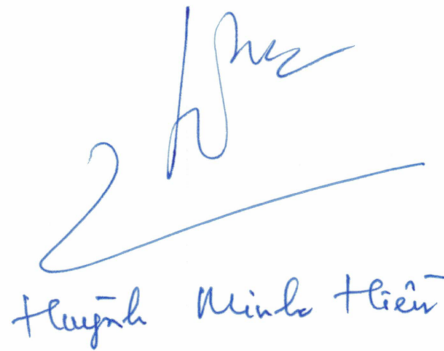 Huỳnh Minh Hiền